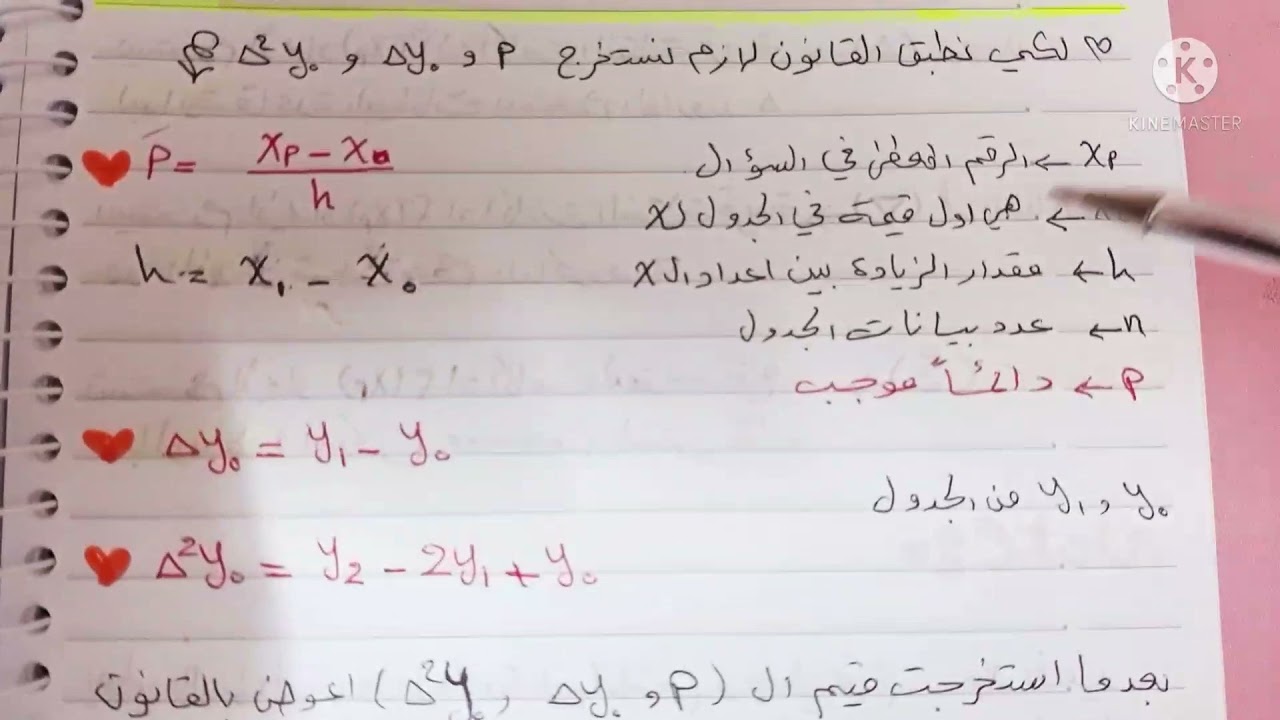 لكي نطبق القانون لازم نستخرج P و Δy₀ و Δ²y₀
KINEMASTER
P = (xp - x₀) / h
xp ← الرقم المعطى في السؤال
← هي اول قيمة في الجدول لـ x
h = x₁ - x₀
h ← مقدار الزيادة بين اعداد الـ x
n ← عدد بيانات الجدول
P ← دائماً موجب
Δy₀ = y₁ - y₀
y₀ و y₁ من الجدول
Δ²y₀ = y₂ - 2y₁ + y₀
بعدما استخرجت قيم ال (P و Δy₀ و Δ²y₀) اعوض بالقانون